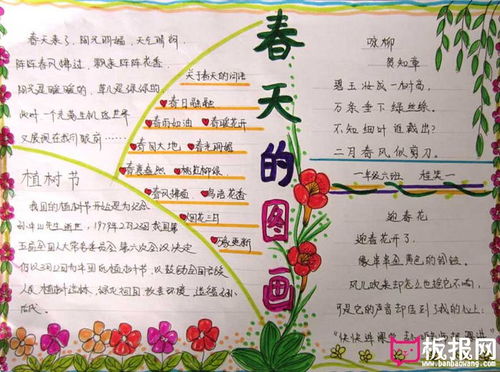 春天的图画
春天来了，阳光明媚，天气晴朗，
阵阵春风拂过，飘来阵阵花香
阳光是暖暖的，草儿是绿绿的。
又展现在我们眼前……
关于春天的词语
春日融融
春雨如油 春暖花开
春回大地 春光明媚
春意盎然 桃红柳绿
春风拂面 鸟语花香
烟花三月
万象更新
植树节
我国的植树节开始是为纪念
孙中山先生逝世，1979年2月23我国第
五届全国人大常务委员会第六次会议决定
仍以3月12日为中国的植树节，以鼓励全国各族
人民植树造林，绿化祖国，改善环境，造福子孙
后代。
咏柳
贺知章
碧玉妆成一树高，
万条垂下绿丝绦。
不知细叶谁裁出？
二月春风似剪刀。
一年级六班
迎春花
迎春花开了，
像串串金黄色的铃铛。
风儿吹来却怎么也摇它不响，
可是它的声音却传到了我的心上：
板报网
www.banbaowang.com